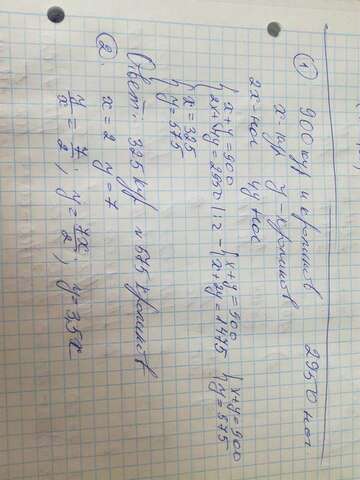 ① 900 кур и кроликов 2950 ног
x-кур y-кроликов
2x-ног 4y ног
{x+y=900 {x+y=900 {x+y=900
{2x+4y=2950 |:2 - {x+2y=1475 {y=575
{x=325
{y=575
Ответ: 325 кур и 575 кроликов
② x=2 y=7
y/x = 7/2; y = 7x/2; y=3,5x